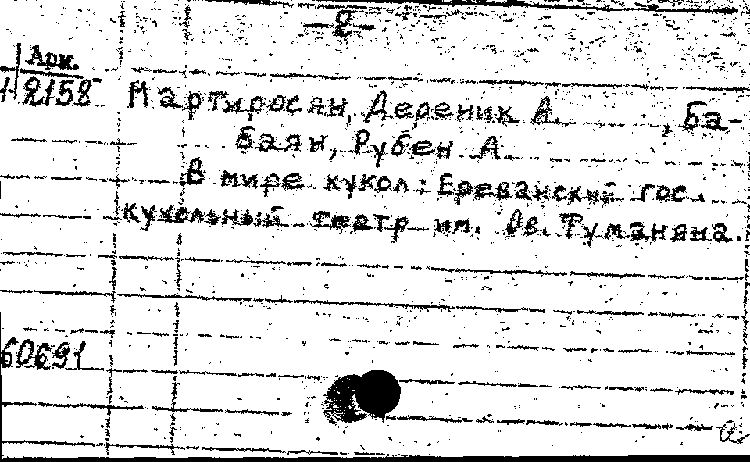 — 2 —
Арм.
2158
Мартиросян, Дереник А. , Ба-
баян, Рубен А.
В мире кукол: Ереванский гос.
кукольный театр им. Ов. Туманяна.
60691